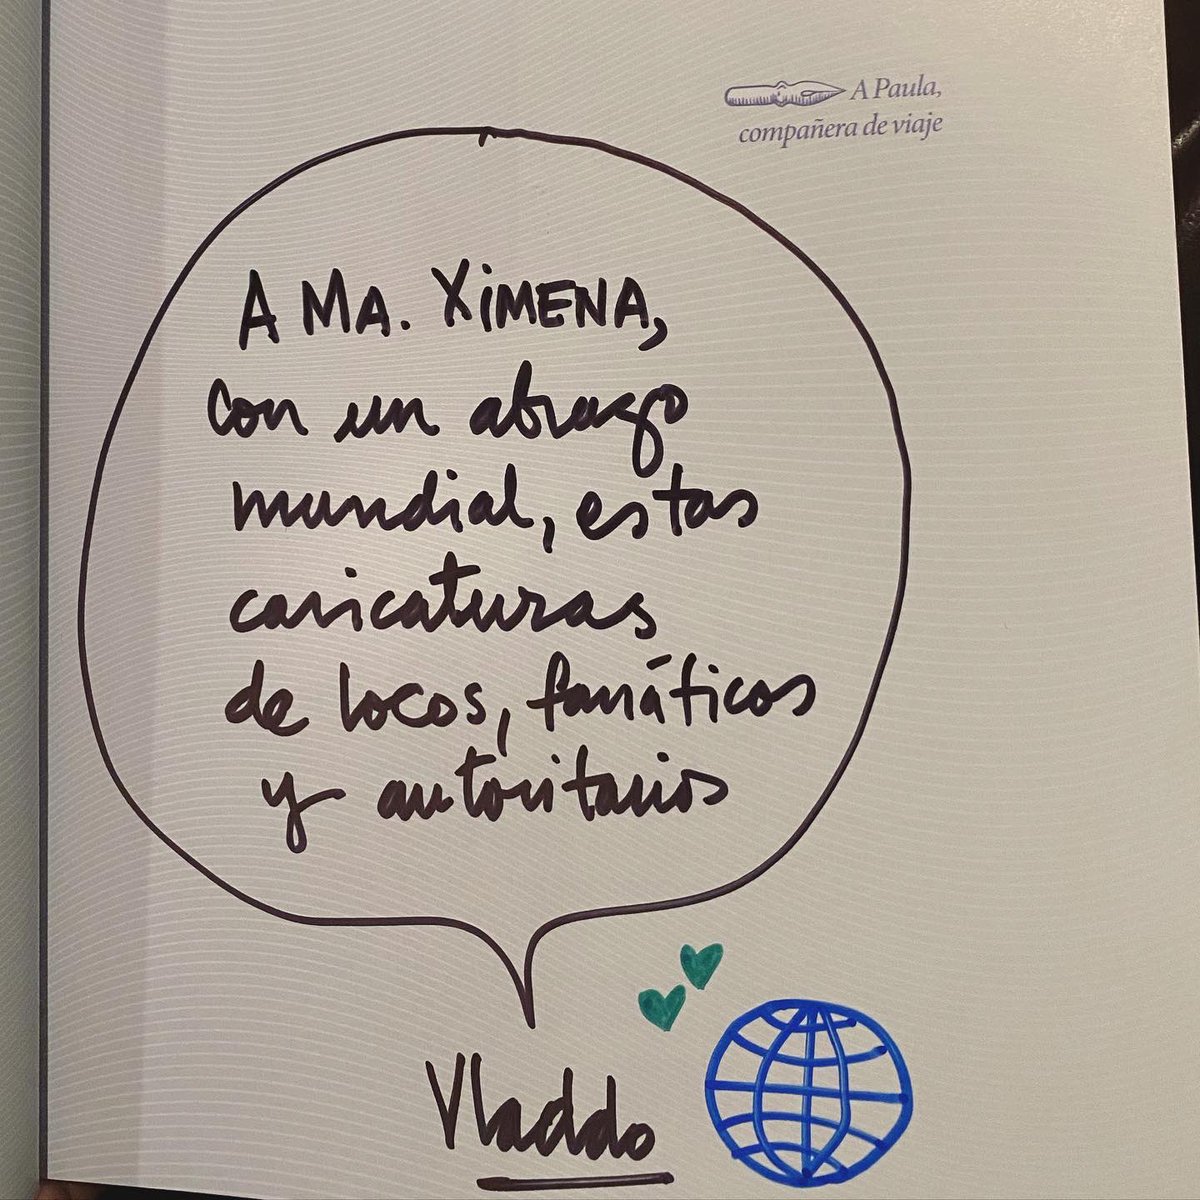 A Paula,
compañera de viaje
A MA. XiMENA,
con un abrazo
mundial, estas
caricaturas
de locos, fanáticos
y autoritarios
Vladdo